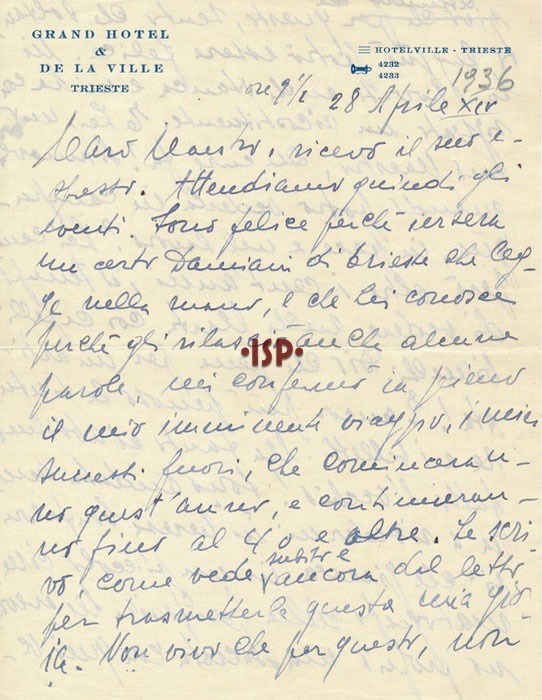 GRAND HOTEL
&
DE LA VILLE
TRIESTE
HOTELVILLE - TRIESTE
4232
4233
1936
ore 9 1/2 28 Aprile XIV
Caro Maestro, ricevo il suo e-
spresso. Attendiamo quindi gli
eventi. Sono felice perché iersera
un certo Damiani di Trieste che leg-
ge nella mano, e che Lei conosce
perché gli rilasciò anche alcune
parole, mi confermò in pieno
il mio imminente viaggio, i miei
successi fuori, che cominceran-
no quest'anno, e continueran-
no fino al 40 e oltre. Le scri-
vo, come vede subito e ancora dal letto
per trasmetterle questa mia gio-
ia. Non vivo che per questo, non
·ISP·